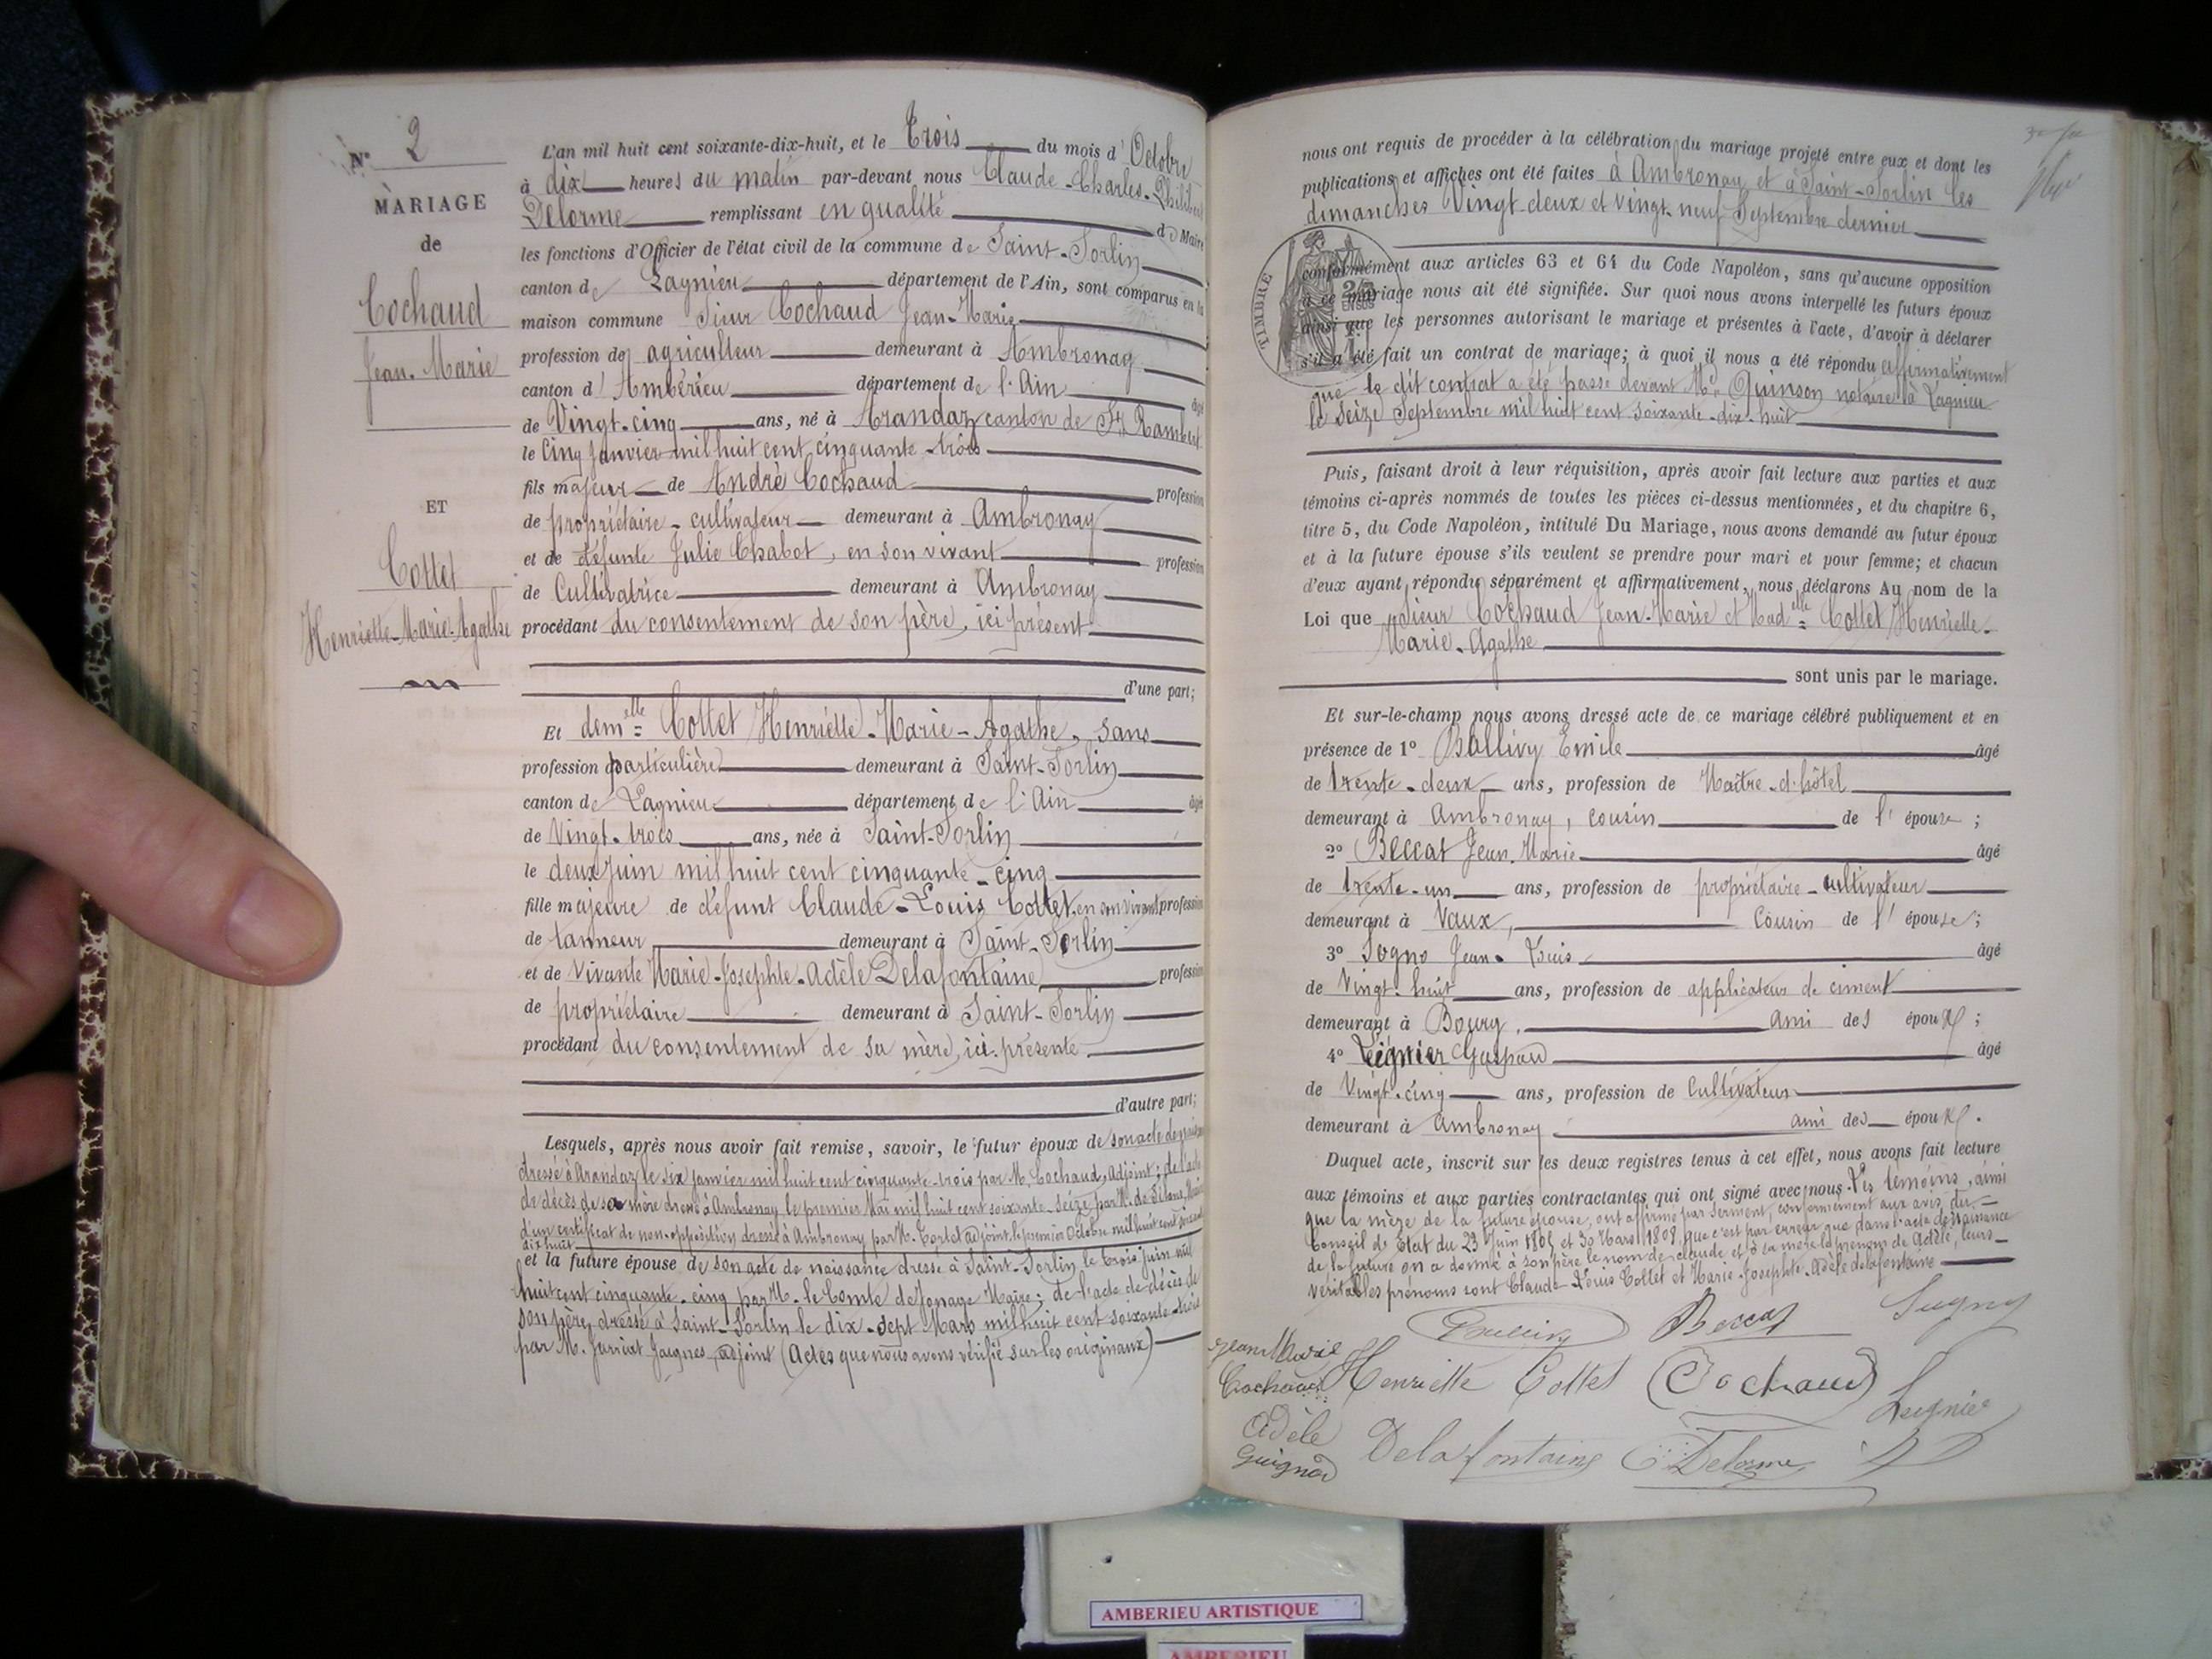 N° 2
MARIAGE
de
Cochaud
Jean-Marie
ET
Cottet
Henriette-Marie-Agathe
L'an mil huit cent soixante-dix-huit, et le Trois du mois d'Octobre
à dix heures du matin par-devant nous Claude-Charles-Philibert
Delorme remplissant en qualité de Maire
les fonctions d'Officier de l'état civil de la commune de Saint-Sorlin
canton de Lagnieu département de l'Ain, sont comparus en la
maison commune Sieur Cochaud Jean-Marie
profession de agriculteur demeurant à Ambronay
canton d'Ambérieu département de l'Ain âgé
de Vingt-cinq ans, né à Arandaz canton de St Rambert
le Cinq Janvier mil huit cent cinquante-trois
fils majeur de André Cochaud profession
de propriétaire-cultivateur demeurant à Ambronay
et de défunte Julie Chabot, en son vivant profession
de Cultivatrice demeurant à Ambronay
procédant du consentement de son père, ici présent
d'une part;
Et demelle Cottet Henriette-Marie-Agathe, sans
profession particulière demeurant à Saint-Sorlin
canton de Lagnieu département de l'Ain âgée
de Vingt-trois ans, née à Saint-Sorlin
le deux Juin mil huit cent cinquante-cinq
fille majeure de défunt Claude-Louis Cottet, en son vivant profession
de tanneur demeurant à Saint-Sorlin
et de vivante Marie-Josephte-Adèle Delafontaine profession
de propriétaire demeurant à Saint-Sorlin
procédant du consentement de sa mère, ici présente
d'autre part;
Lesquels, après nous avoir fait remise, savoir, le futur époux de son acte de naissance
dressé à Arandaz le six janvier mil huit cent cinquante-trois par M. Cochaud, Adjoint; de l'acte
de décès de sa mère dressé à Ambronay le premier Mai mil huit cent soixante-seize par M. de
d'un certificat de non-opposition dressé à Ambronay par M. Tortet adjoint le premier Octobre mil huit cent soixante
dix huit
et la future épouse de son acte de naissance dressé à Saint-Sorlin le trois juin mil
huit cent cinquante-cinq par M. le Comte de Jonage Maire; de l'acte de décès de
son père, dressé à Saint-Sorlin le dix-sept Mars mil huit cent soixante-trois
par M. Jacques, adjoint (Actes que nous avons vérifié sur les originaux)
nous ont requis de procéder à la célébration du mariage projeté entre eux et dont les
publications et affiches ont été faites à Ambronay et à Saint-Sorlin les
dimanches Vingt-deux et vingt-neuf Septembre dernier
TIMBRE
conformément aux articles 63 et 64 du Code Napoléon, sans qu'aucune opposition
à ce mariage nous ait été signifiée. Sur quoi nous avons interpellé les futurs époux
ainsi que les personnes autorisant le mariage et présentes à l'acte, d'avoir à déclarer
s'il a été fait un contrat de mariage; à quoi il nous a été répondu affirmativement
que le dit contrat a été passé devant Me Quinson notaire à Lagnieu
le seize Septembre mil huit cent soixante-dix-huit
Puis, faisant droit à leur réquisition, après avoir fait lecture aux parties et aux
témoins ci-après nommés de toutes les pièces ci-dessus mentionnées, et du chapitre 6,
titre 5, du Code Napoléon, intitulé Du Mariage, nous avons demandé au futur époux
et à la future épouse s'ils veulent se prendre pour mari et pour femme; et chacun
d'eux ayant répondu séparément et affirmativement, nous déclarons Au nom de la
Loi que Sieur Cochaud Jean-Marie et Madelle Cottet Henriette-
Marie-Agathe
sont unis par le mariage.
Et sur-le-champ nous avons dressé acte de ce mariage célébré publiquement et en
présence de 1° Ballivy Emile âgé
de trente-deux ans, profession de Maître-d'hôtel
demeurant à Ambronay, cousin de l'épouse;
2° Beccat Jean-Marie âgé
de trente-un ans, profession de propriétaire-cultivateur
demeurant à Vaux, Cousin de l'épouse;
3° Sogno Jean-Louis âgé
de Vingt-huit ans, profession de applicateur de ciment
demeurant à Bourg, ami des époux;
4° Léignier Gaspard âgé
de Vingt-cinq ans, profession de Cultivateur
demeurant à Ambronay ami des époux.
Duquel acte, inscrit sur les deux registres tenus à cet effet, nous avons fait lecture
aux témoins et aux parties contractantes qui ont signé avec nous. Les témoins, ainsi
que la mère de la future épouse, ont affirmé par serment, conformément aux avis du
Conseil de Etat du 23 Juin 1805 et 30 Mars 1808, que c'est par erreur que dans l'acte de naissance
de la future on a donné à son père le nom de claude et à sa mère le prénom de Adèle, leurs
véritables prénoms sont Claude-Louis Cottet et Marie-Josephte-Adèle delafontaine
Ballivy Beccat Sogno
Jean Marie
Cochaud Henriette Cottet Cochaud Leignier
Adèle
Guignod Delafontaine C. Delorme
AMBERIEU ARTISTIQUE
AMBERIEU